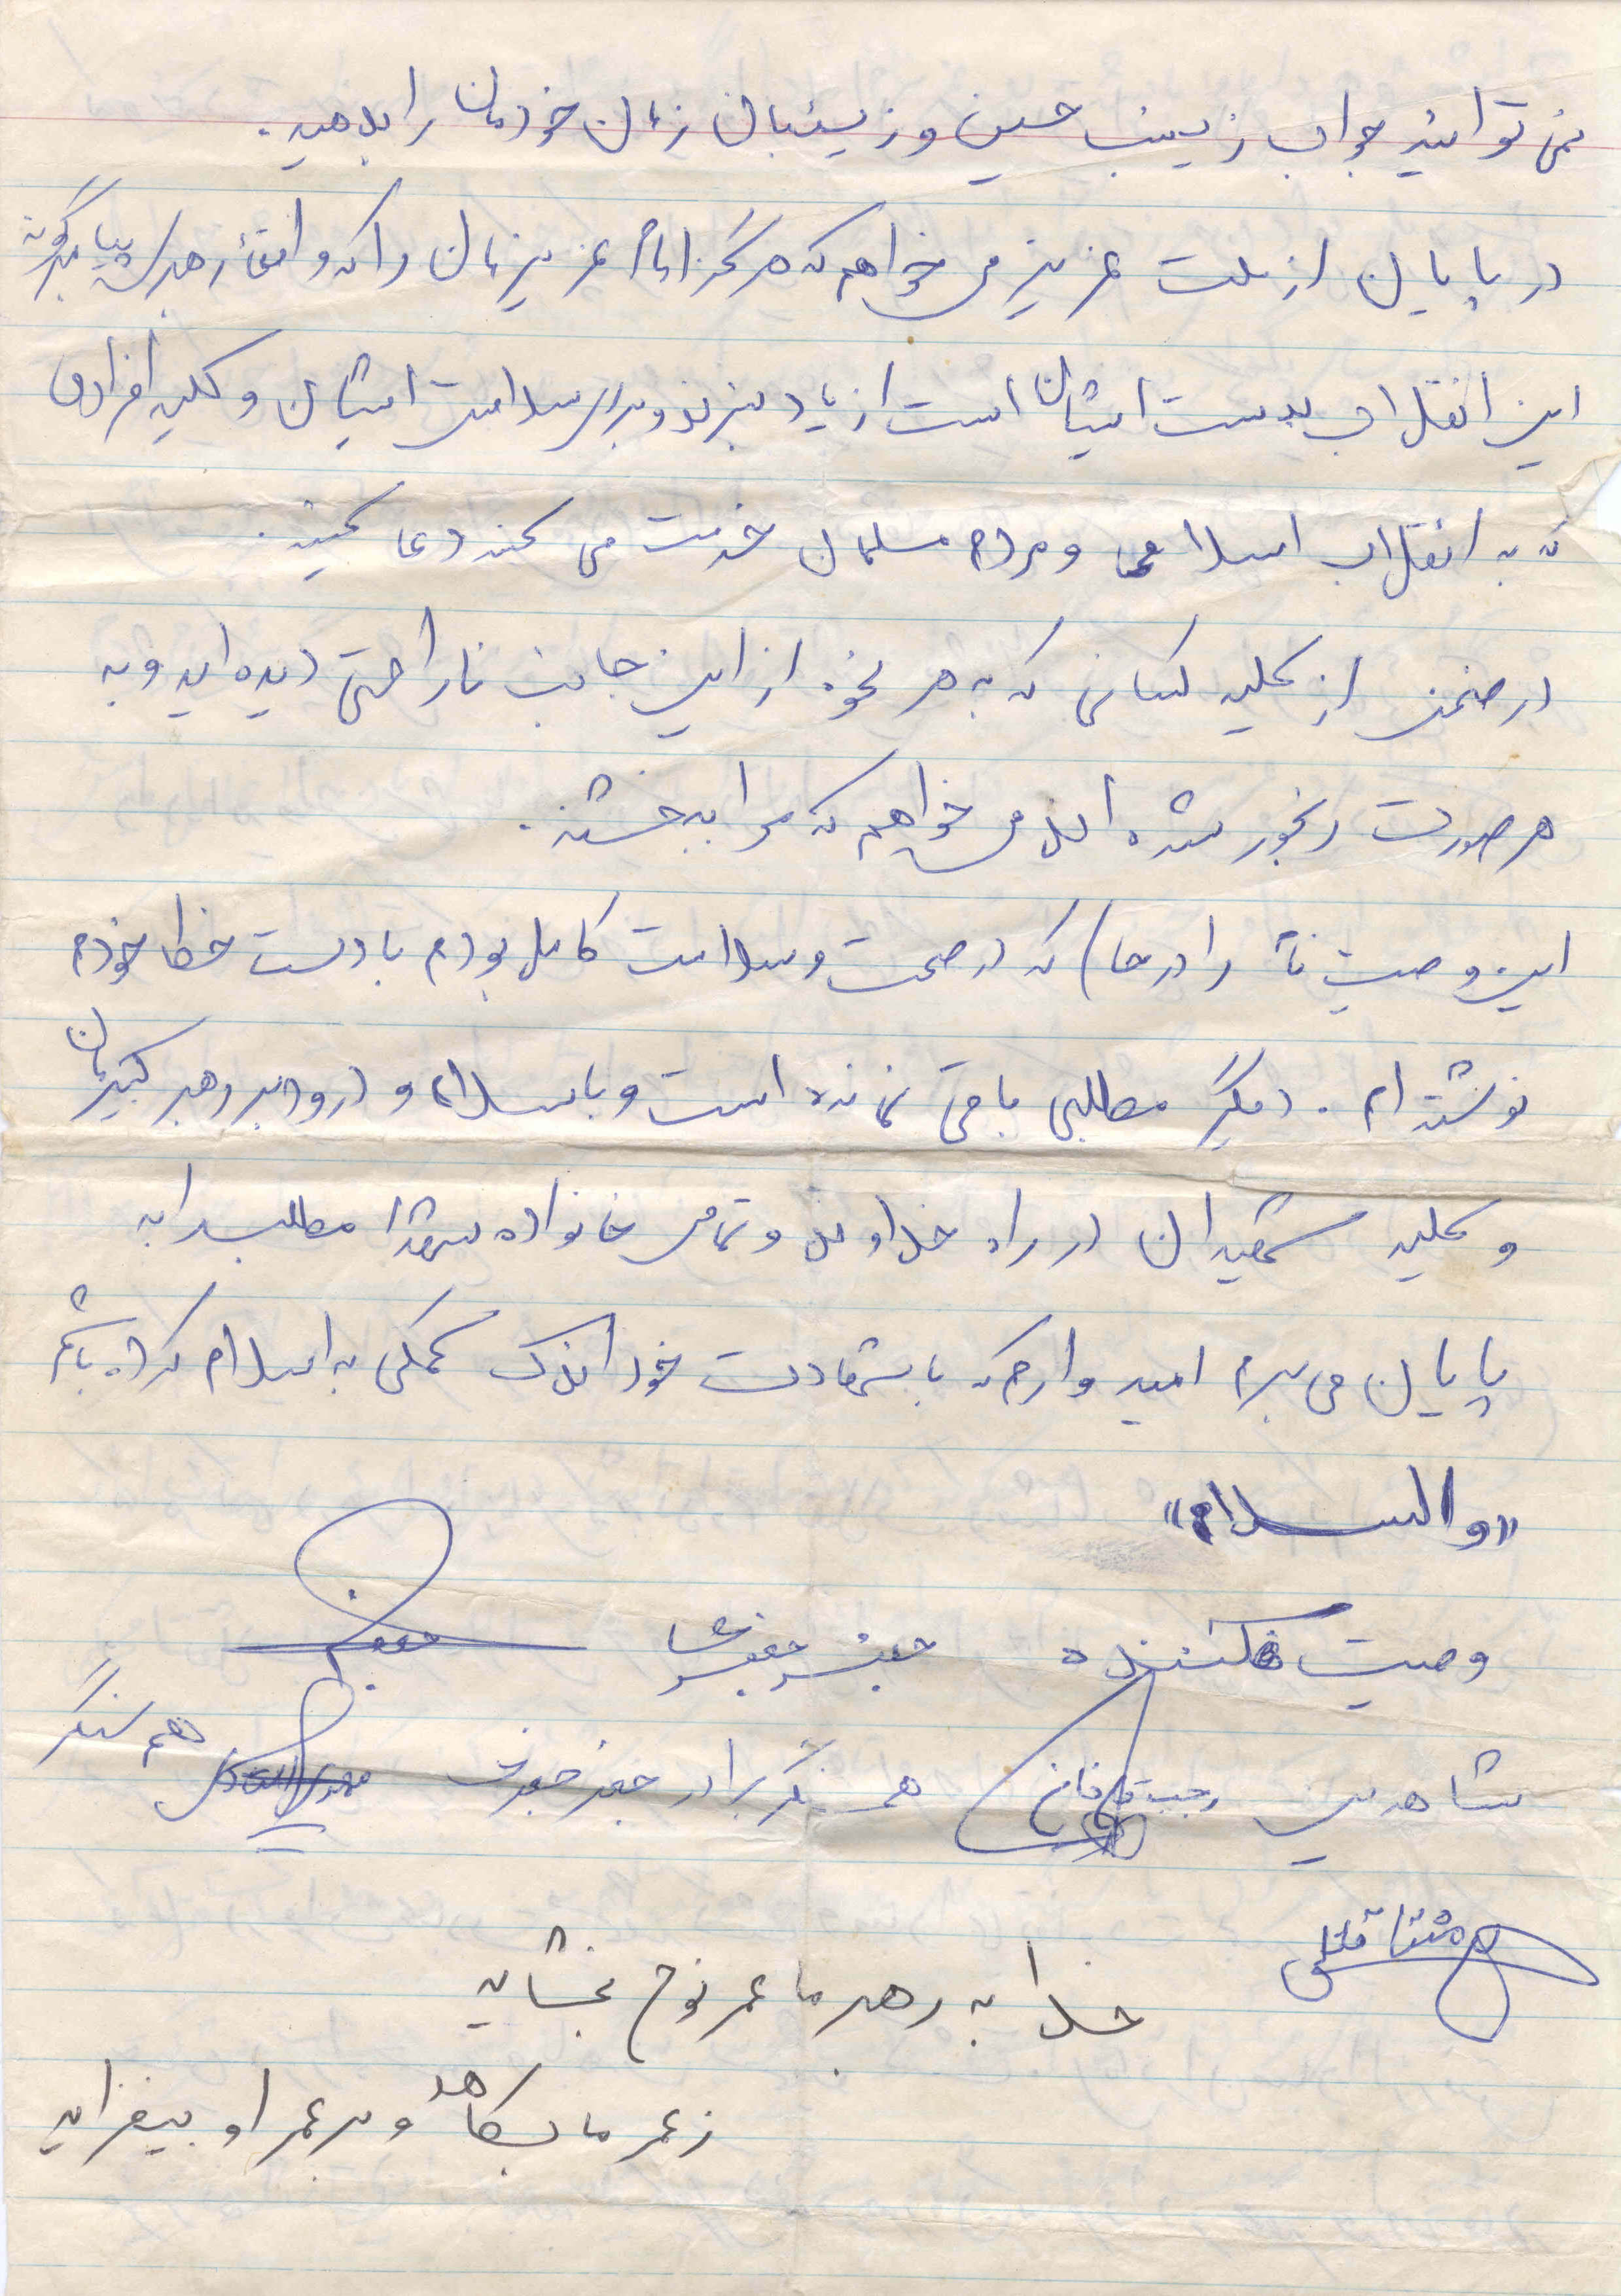 نمی توانید جواب زینب حسین و زینبان زمان خودمان را بدهید.
در پایان از ملت عزیز می خواهم که هرگز امام عزیزمان را که واقعاً رهبری پیامبرگونه
این انقلاب بدست ایشان است از یاد نبرند و برای سلامتی ایشان و کلیه افرادی
که به انقلاب اسلامی و مردم مسلمان خدمت می کنند دعا کنید.
در ضمن از کلیه کسانی که به هر نحوه از این جانب ناراحتی دیده اید و به
هر صورت رنجور شده اند می خواهم که مرا ببخشند.
این وصیت نامه را در حالی که در صحت و سلامت کامل بودم با دست خط خودم
نوشته ام. دیگر مطلبی باقی نمانده است و با سلام و درود بر رهبر کبیرمان
و کلیه شهیدان در راه خداوند و تمامی خانواده شهدا مطلب را به
پایان می برم امیدوارم که با شهادت خود اندک کمکی به اسلام کرده باشم
«والسلام»
وصیت کننده جعفر جعفری
شاهدین رجب همسنگر برادر جعفر جعفری هم سنگر
خدا به رهبر ما عمر نوح بخشاید
ز عمر ما بکاهد و بر عمر او بیفزاید